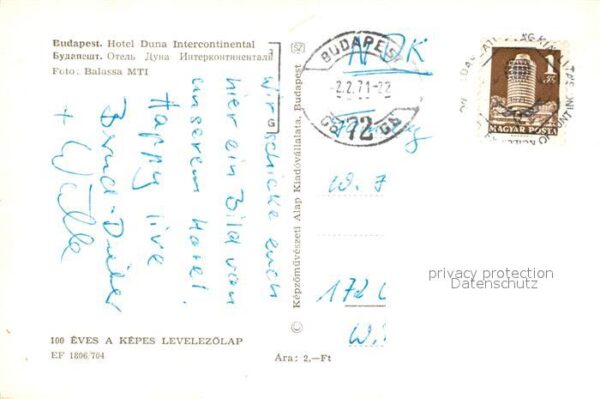 Budapest. Hotel Duna Intercontinental
Будапешт. Отель Дуна Интерконтиненталь
Foto: Balassa MTI
Wir schicken euch
hier ein Bild von
unserem Hotel.
Happy live
Bernd-Dieter
+ Willa
100 ÉVES A KÉPES LEVELEZŐLAP
EF 1806/704
Ára: 2,—Ft
© Képzőművészeti Alap Kiadóvállalata, Budapest
BUDAPEST
-2.2.71-22
72
MAGYAR POSTA
1
W.
172
W.
privacy protection
Datenschutz